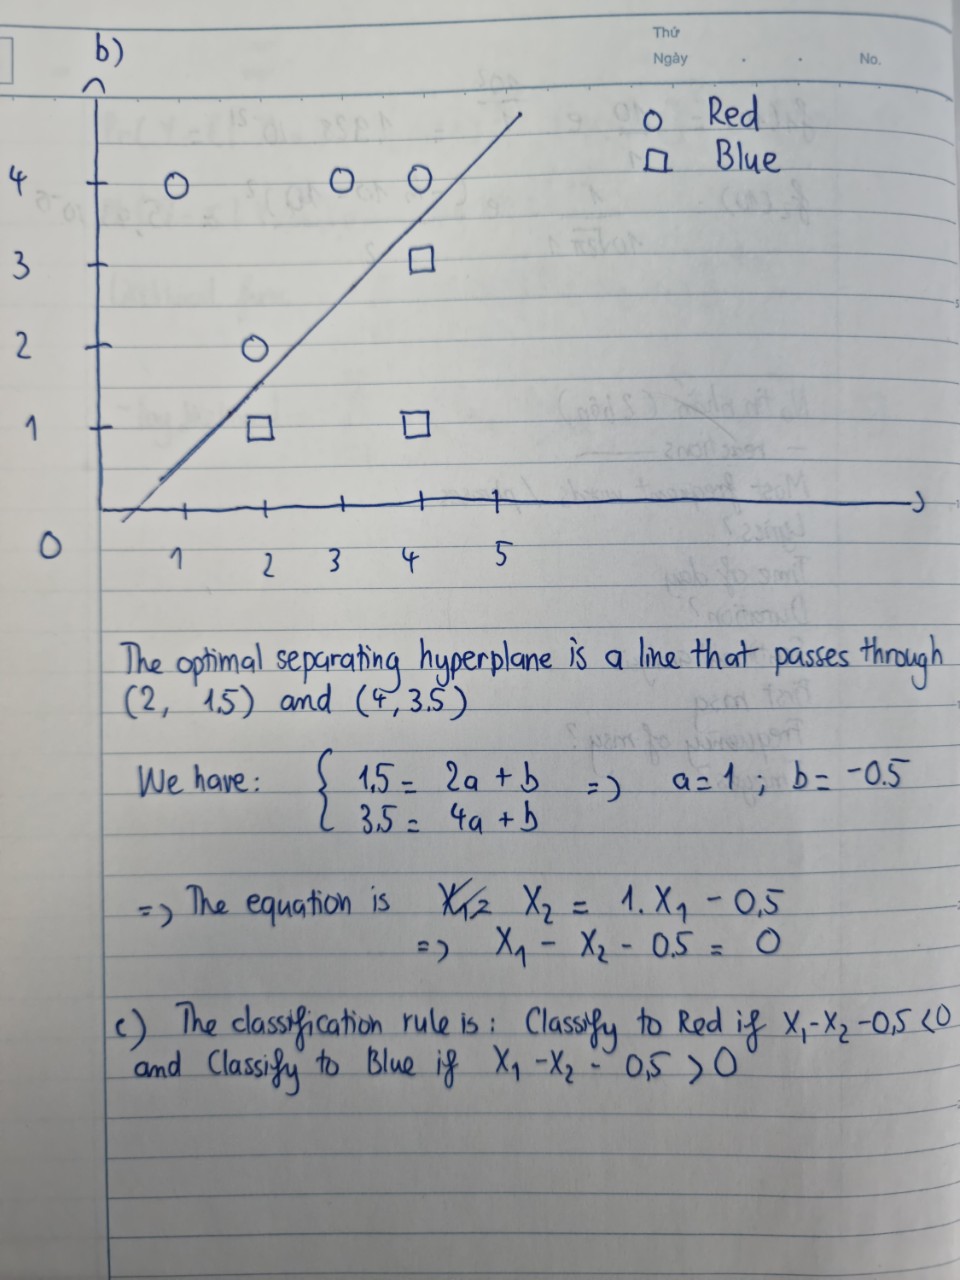 b)
Thứ
Ngày . . No.
Red
Blue
4
3
2
1
0
1 2 3 4 5
The optimal separating hyperplane is a line that passes through
(2, 1.5) and (4, 3.5)
We have: { 1,5 = 2a + b => a = 1 ; b = -0.5
3.5 = 4a + b
=> The equation is X₂ = 1. X₁ - 0,5
=> X₁ - X₂ - 0.5 = 0
c) The classification rule is : Classify to Red if X₁-X₂-0,5 <0
and Classify to Blue if X₁ -X₂ - 0,5 >0